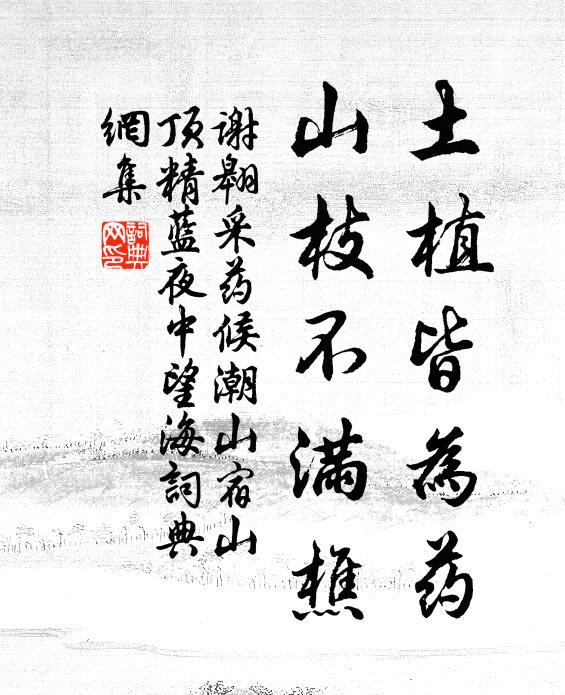 土植皆為药
山枝不滿樵
谢翱采药候潮山宿山
顶精蓝夜中望海詞典
網集
詞典
网印